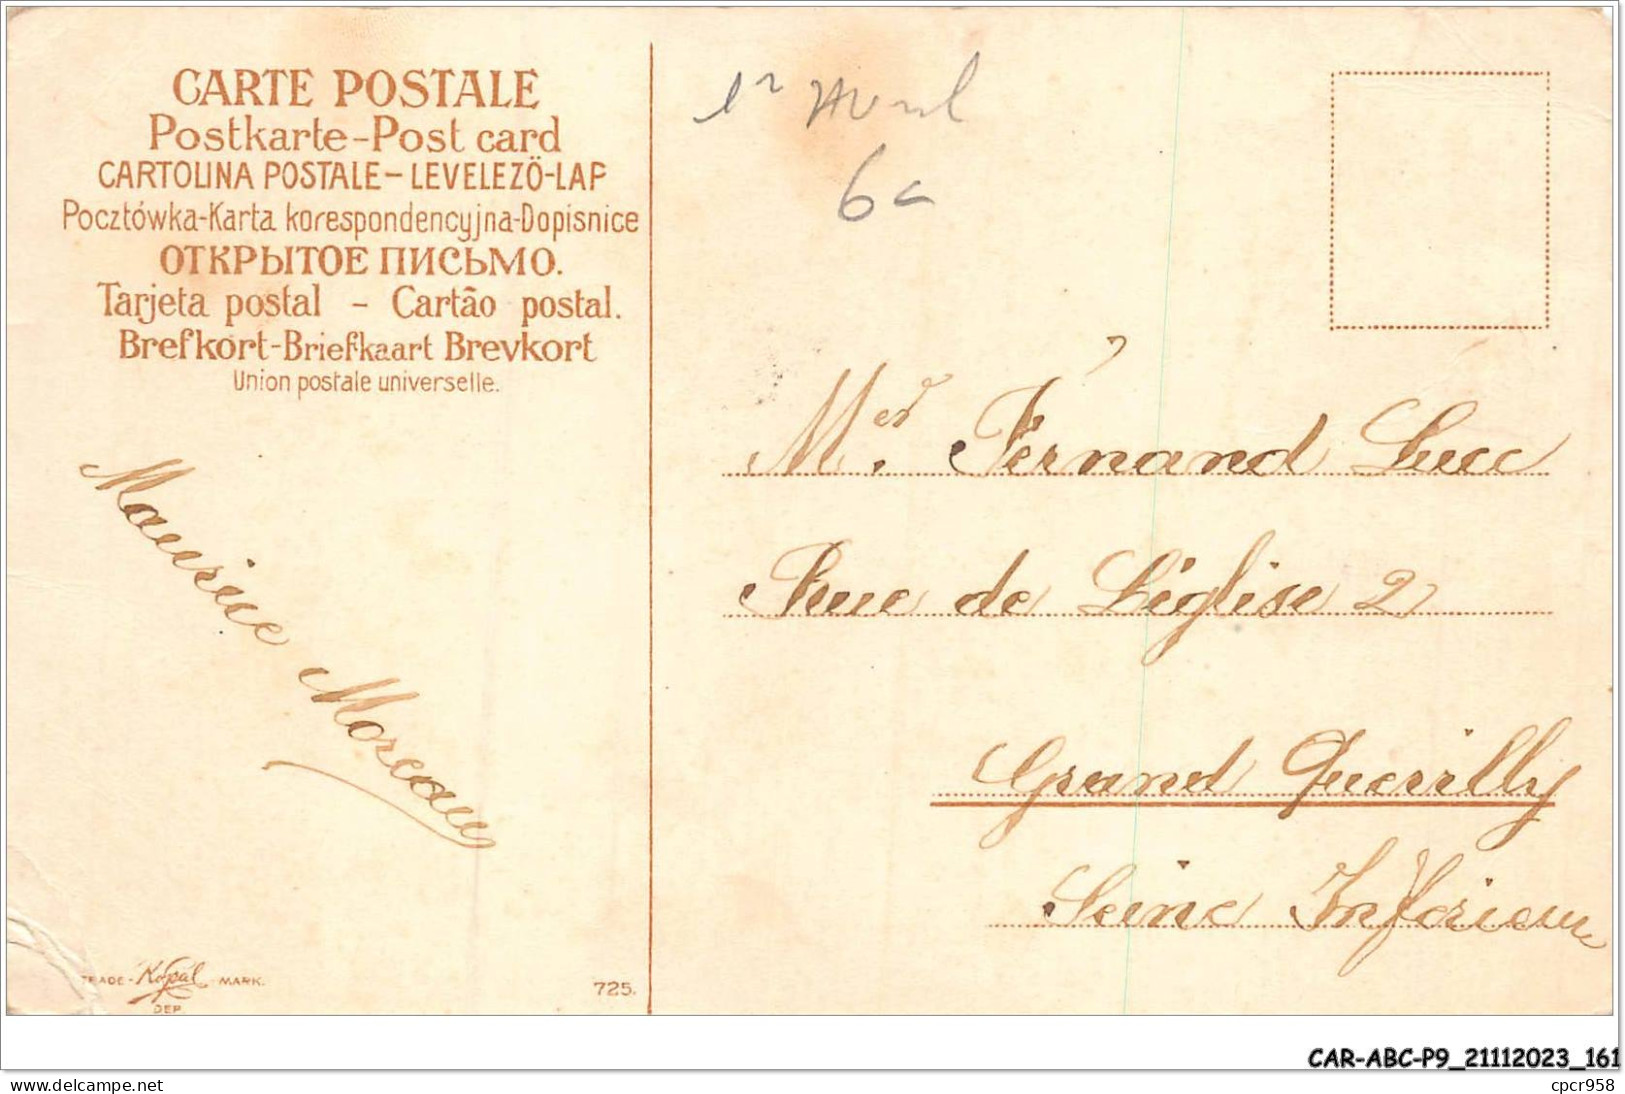 CARTE POSTALE
Postkarte-Post card
CARTOLINA POSTALE-LEVELEZÖ-LAP
Pocztówka-Karta korespondencyjna-Dopisnice
ОТКРЫТОЕ ПИСЬМО.
Tarjeta postal - Cartão postal.
Brefkort-Briefkaart Brevkort
Union postale universelle.
1r Avril
6c
Mer. Fernand Lucc
Rue de L'église 2
Grand Quevilly
Seine Inférieure
Maurice Moreau
TRADE-Kopal MARK.
DEP.
725.
CAR-ABC-P9_21112023_161
www.delcampe.net
cpcr958